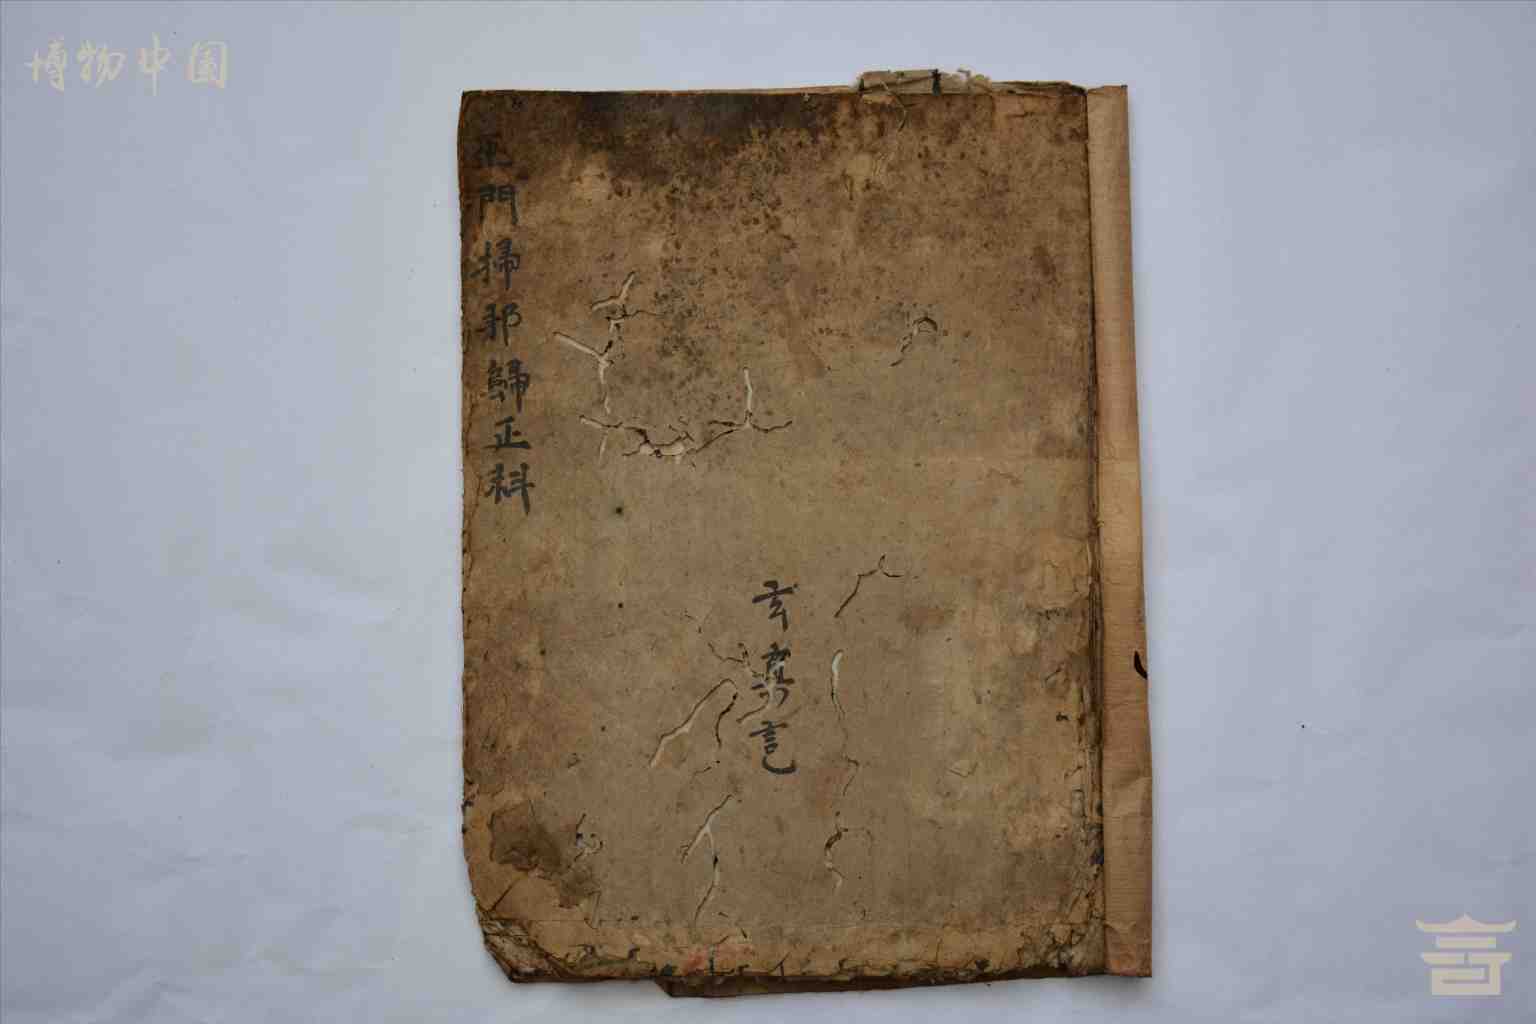 博物中国
巫門掃邪歸正科
玄
記